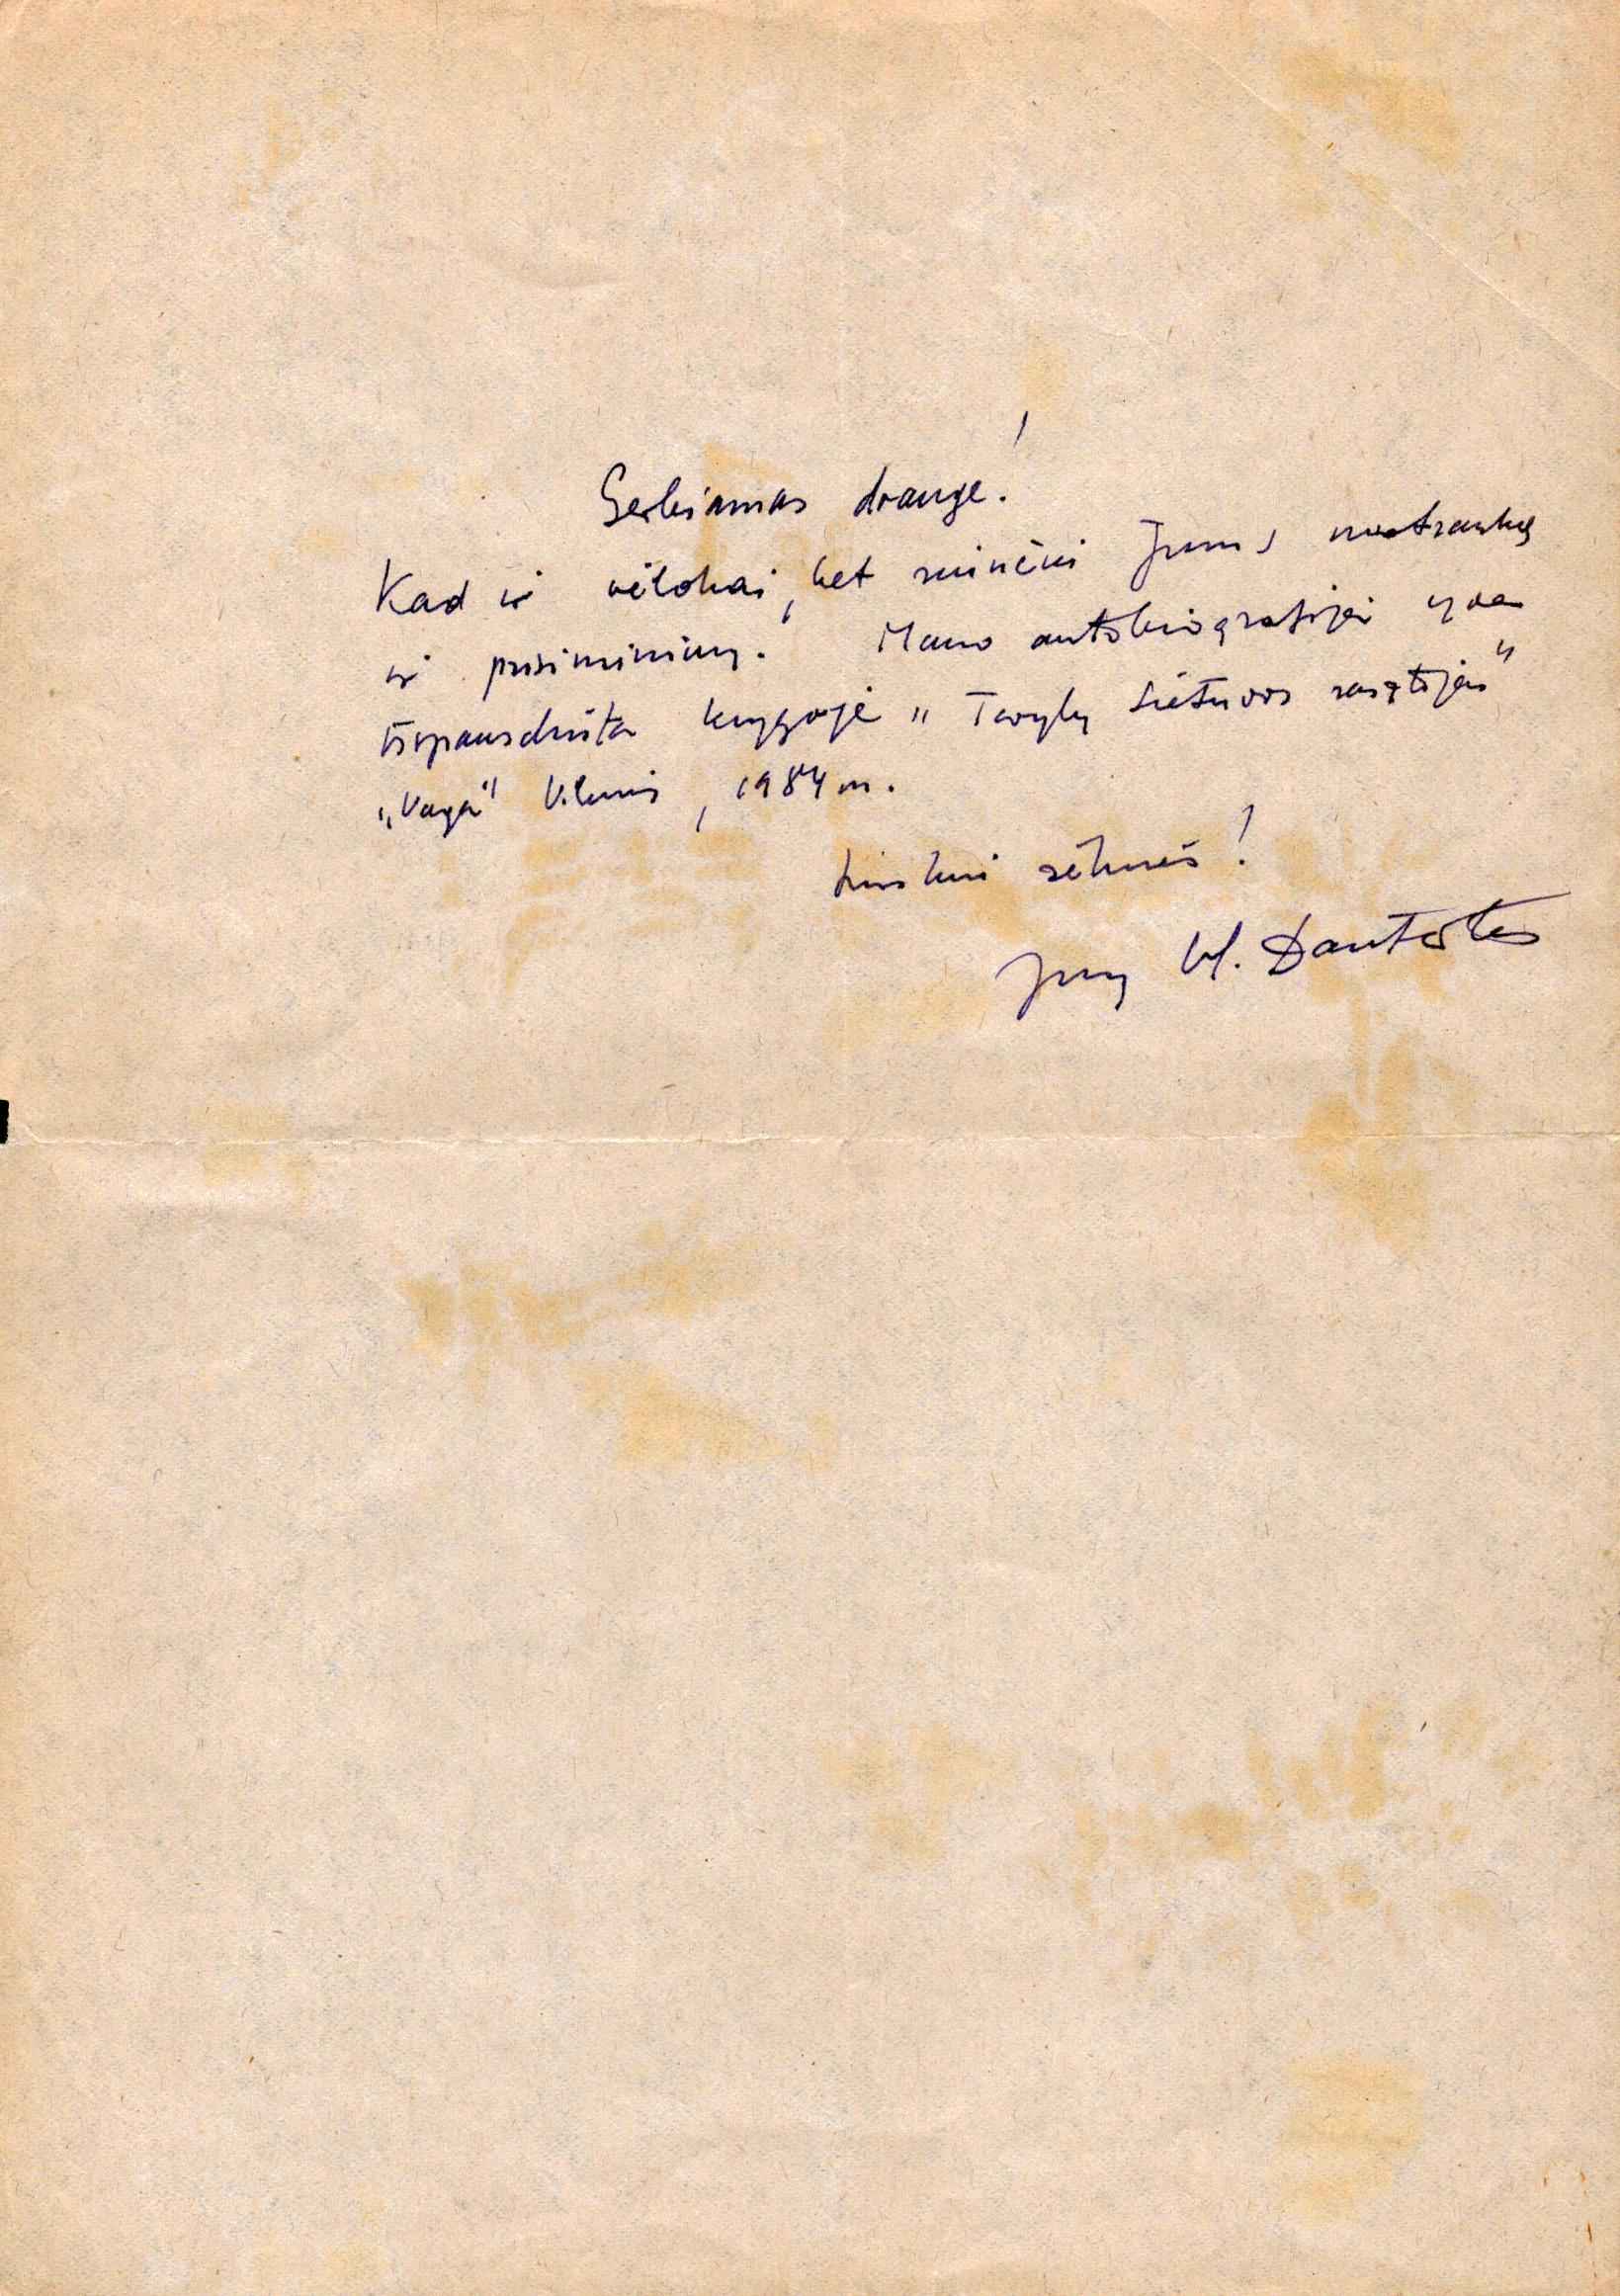 Gerbiamas drauge!
Kad ir vėlokai, bet siunčiu Jums nuotrauką
ir prisiminimų. Mano autobiografija yra
išspausdinta knygoje „Tarybų Lietuvos rašytojai"
„Vaga" Vilnius, 1984 m.
Linkiu sėkmės!
Jūsų Vl. Dautartas